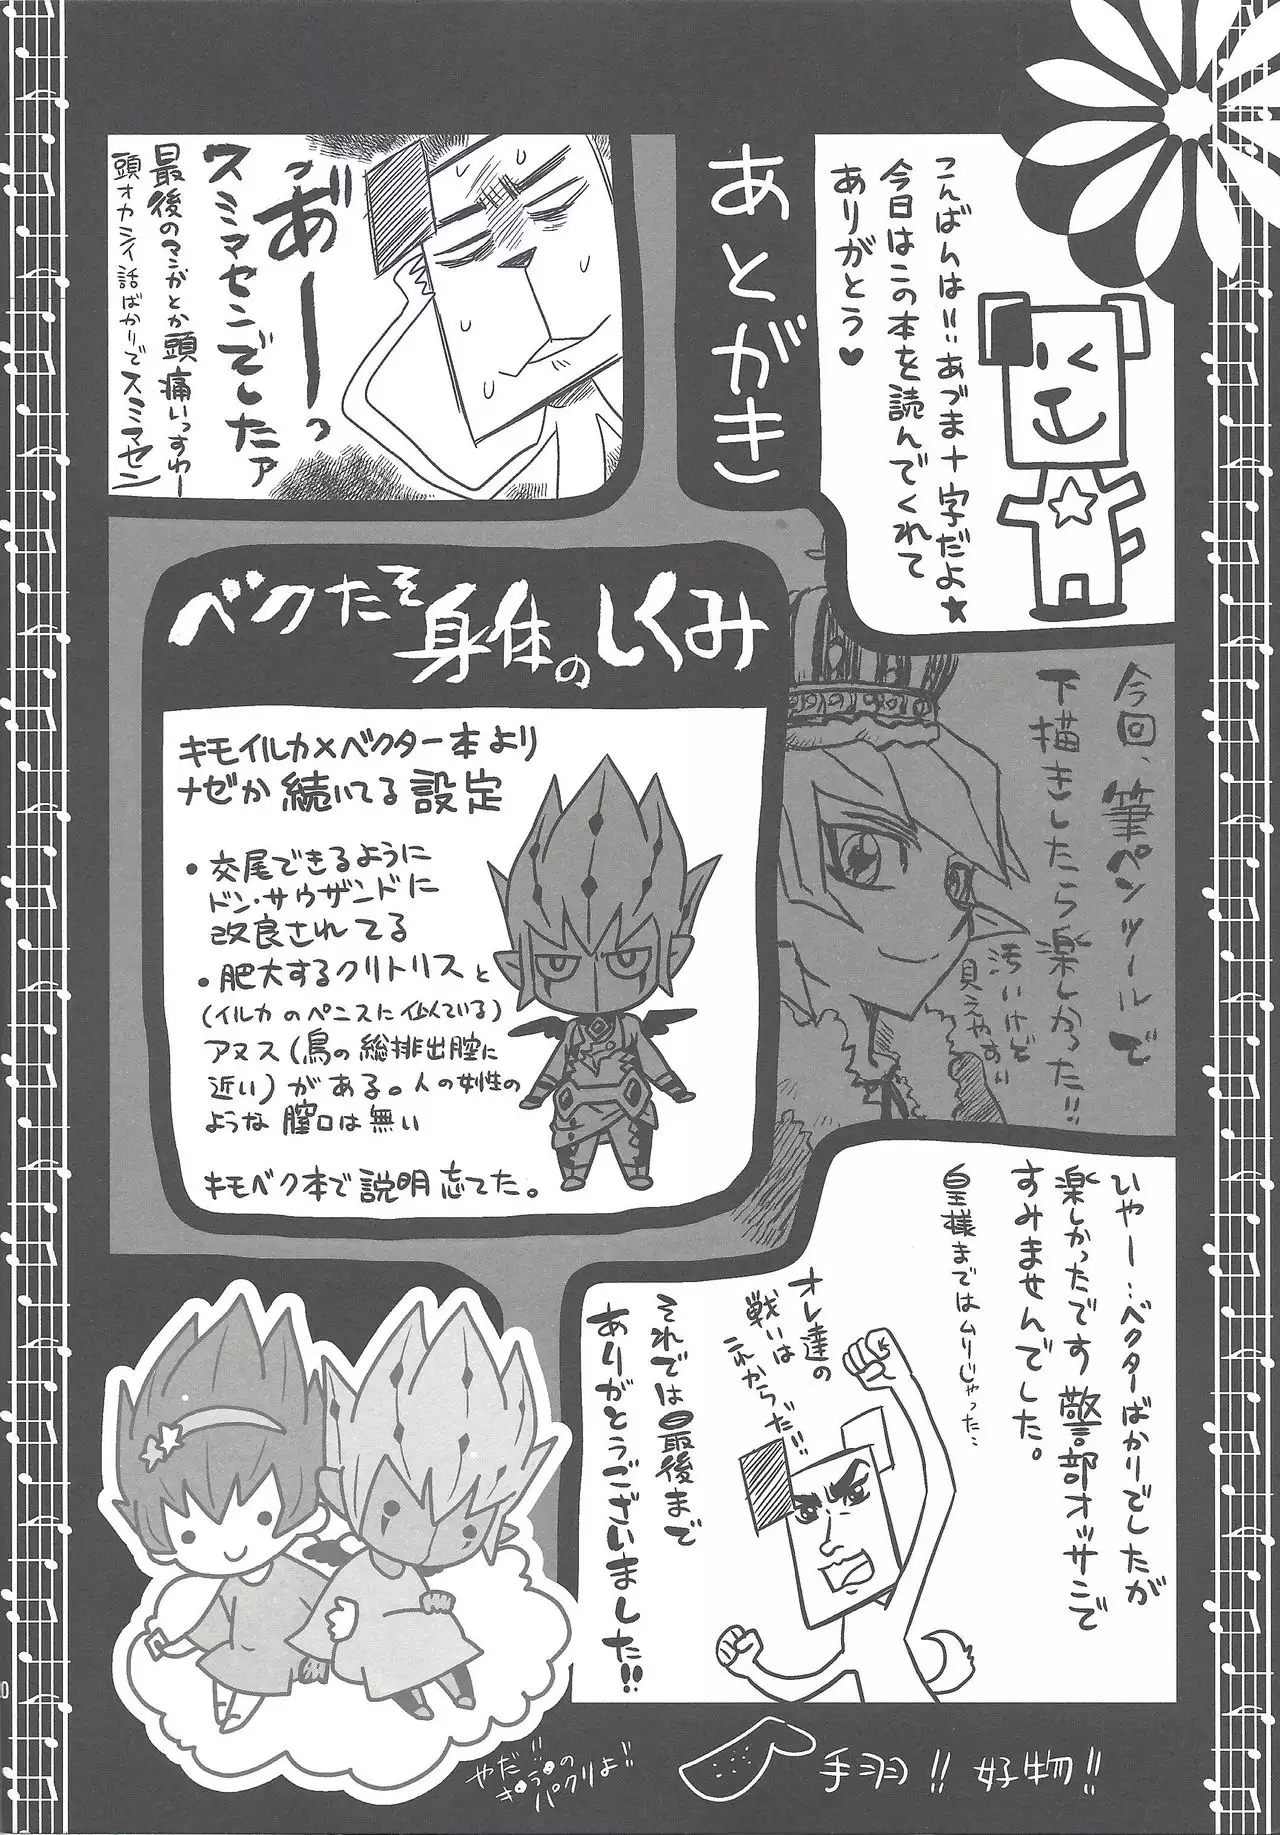 こんばんは!!あづま十字だよ★
今日はこの本を読んでくれて
ありがとう♥
あとがき
あ゛ーーっ
スミマセンでしたァ
最後のマンガとか頭痛いっすわー
頭オカシイ話ばかりでスミマセン
今回、筆ペンツールで
下描きしたら楽しかった!!
汚いけど
見えやすい
ベクたそ
身体のしくみ
キモイルカ×ベクター本より
ナゼか続いてる設定
・交尾できるように
ドン・サウザンドに
改良されてる
・肥大するクリトリスと
(イルカのペニスに似ている)
アヌス(鳥の総排出腔に
近い)がある。人の女性の
ような膣口は無い
キモベク本で説明忘れてた。
いやー…ベクターばかりでしたが
楽しかったです警部オッサンで
すみませんでした。
皇様まではムリじゃった…
オレ達の
戦いは
これからだ!!
それでは最後まで
ありがとうございました!!
やだ!!
パクリよ!!
手羽!!好物!!
20